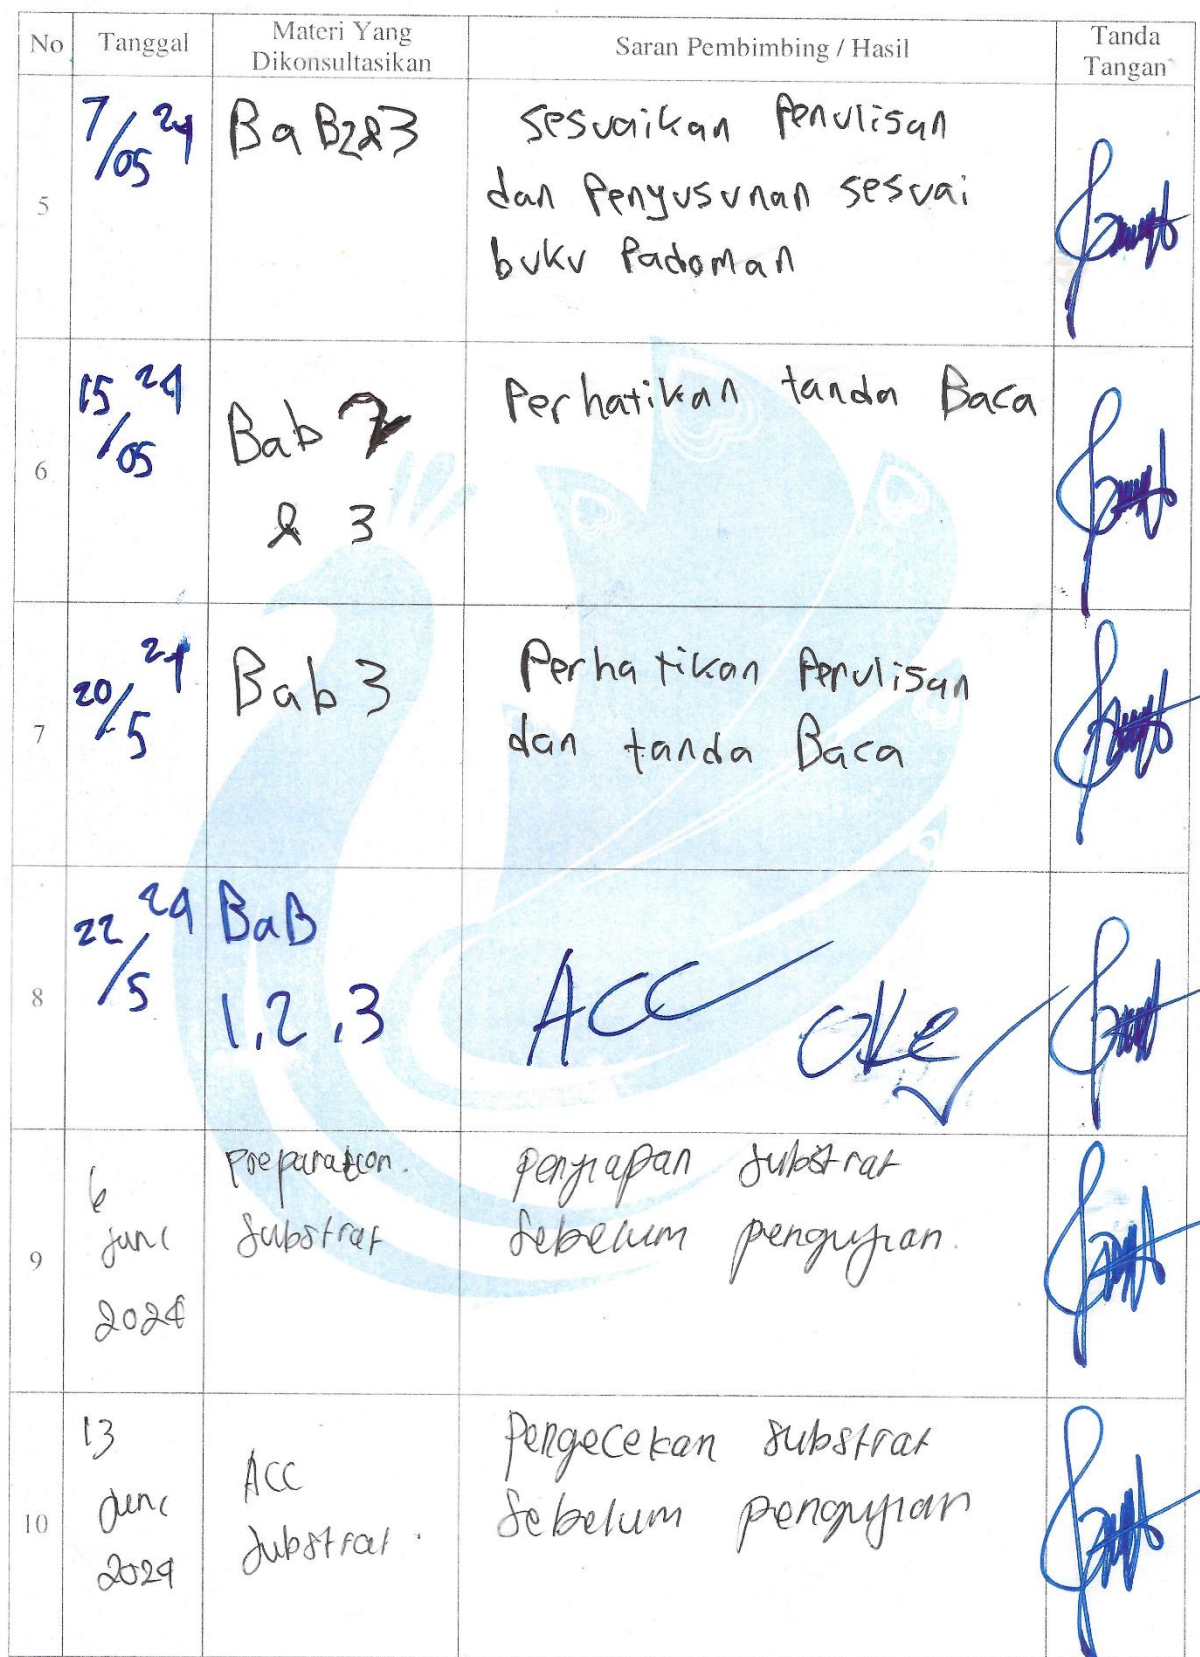 No Tanggal Materi Yang Dikonsultasikan Saran Pembimbing / Hasil Tanda Tangan
5 7/05 24 BaB 2 & 3 sesuaikan Penulisan
dan Penyusunan sesuai
buku Padoman
6 15/05 24 Bab 2 Perhatikan tanda Baca
& 3
7 20/5 24 Bab 3 Perhatikan Penulisan
dan tanda Baca
8 22/5 24 BaB
1,2,3 ACC OKe
9 6 Preparation. penyiapan substrat
juni substrat sebelum pengujian.
2024
10 13 Pengecekan substrat
juni ACC sebelum pengujian
2024 substrat.